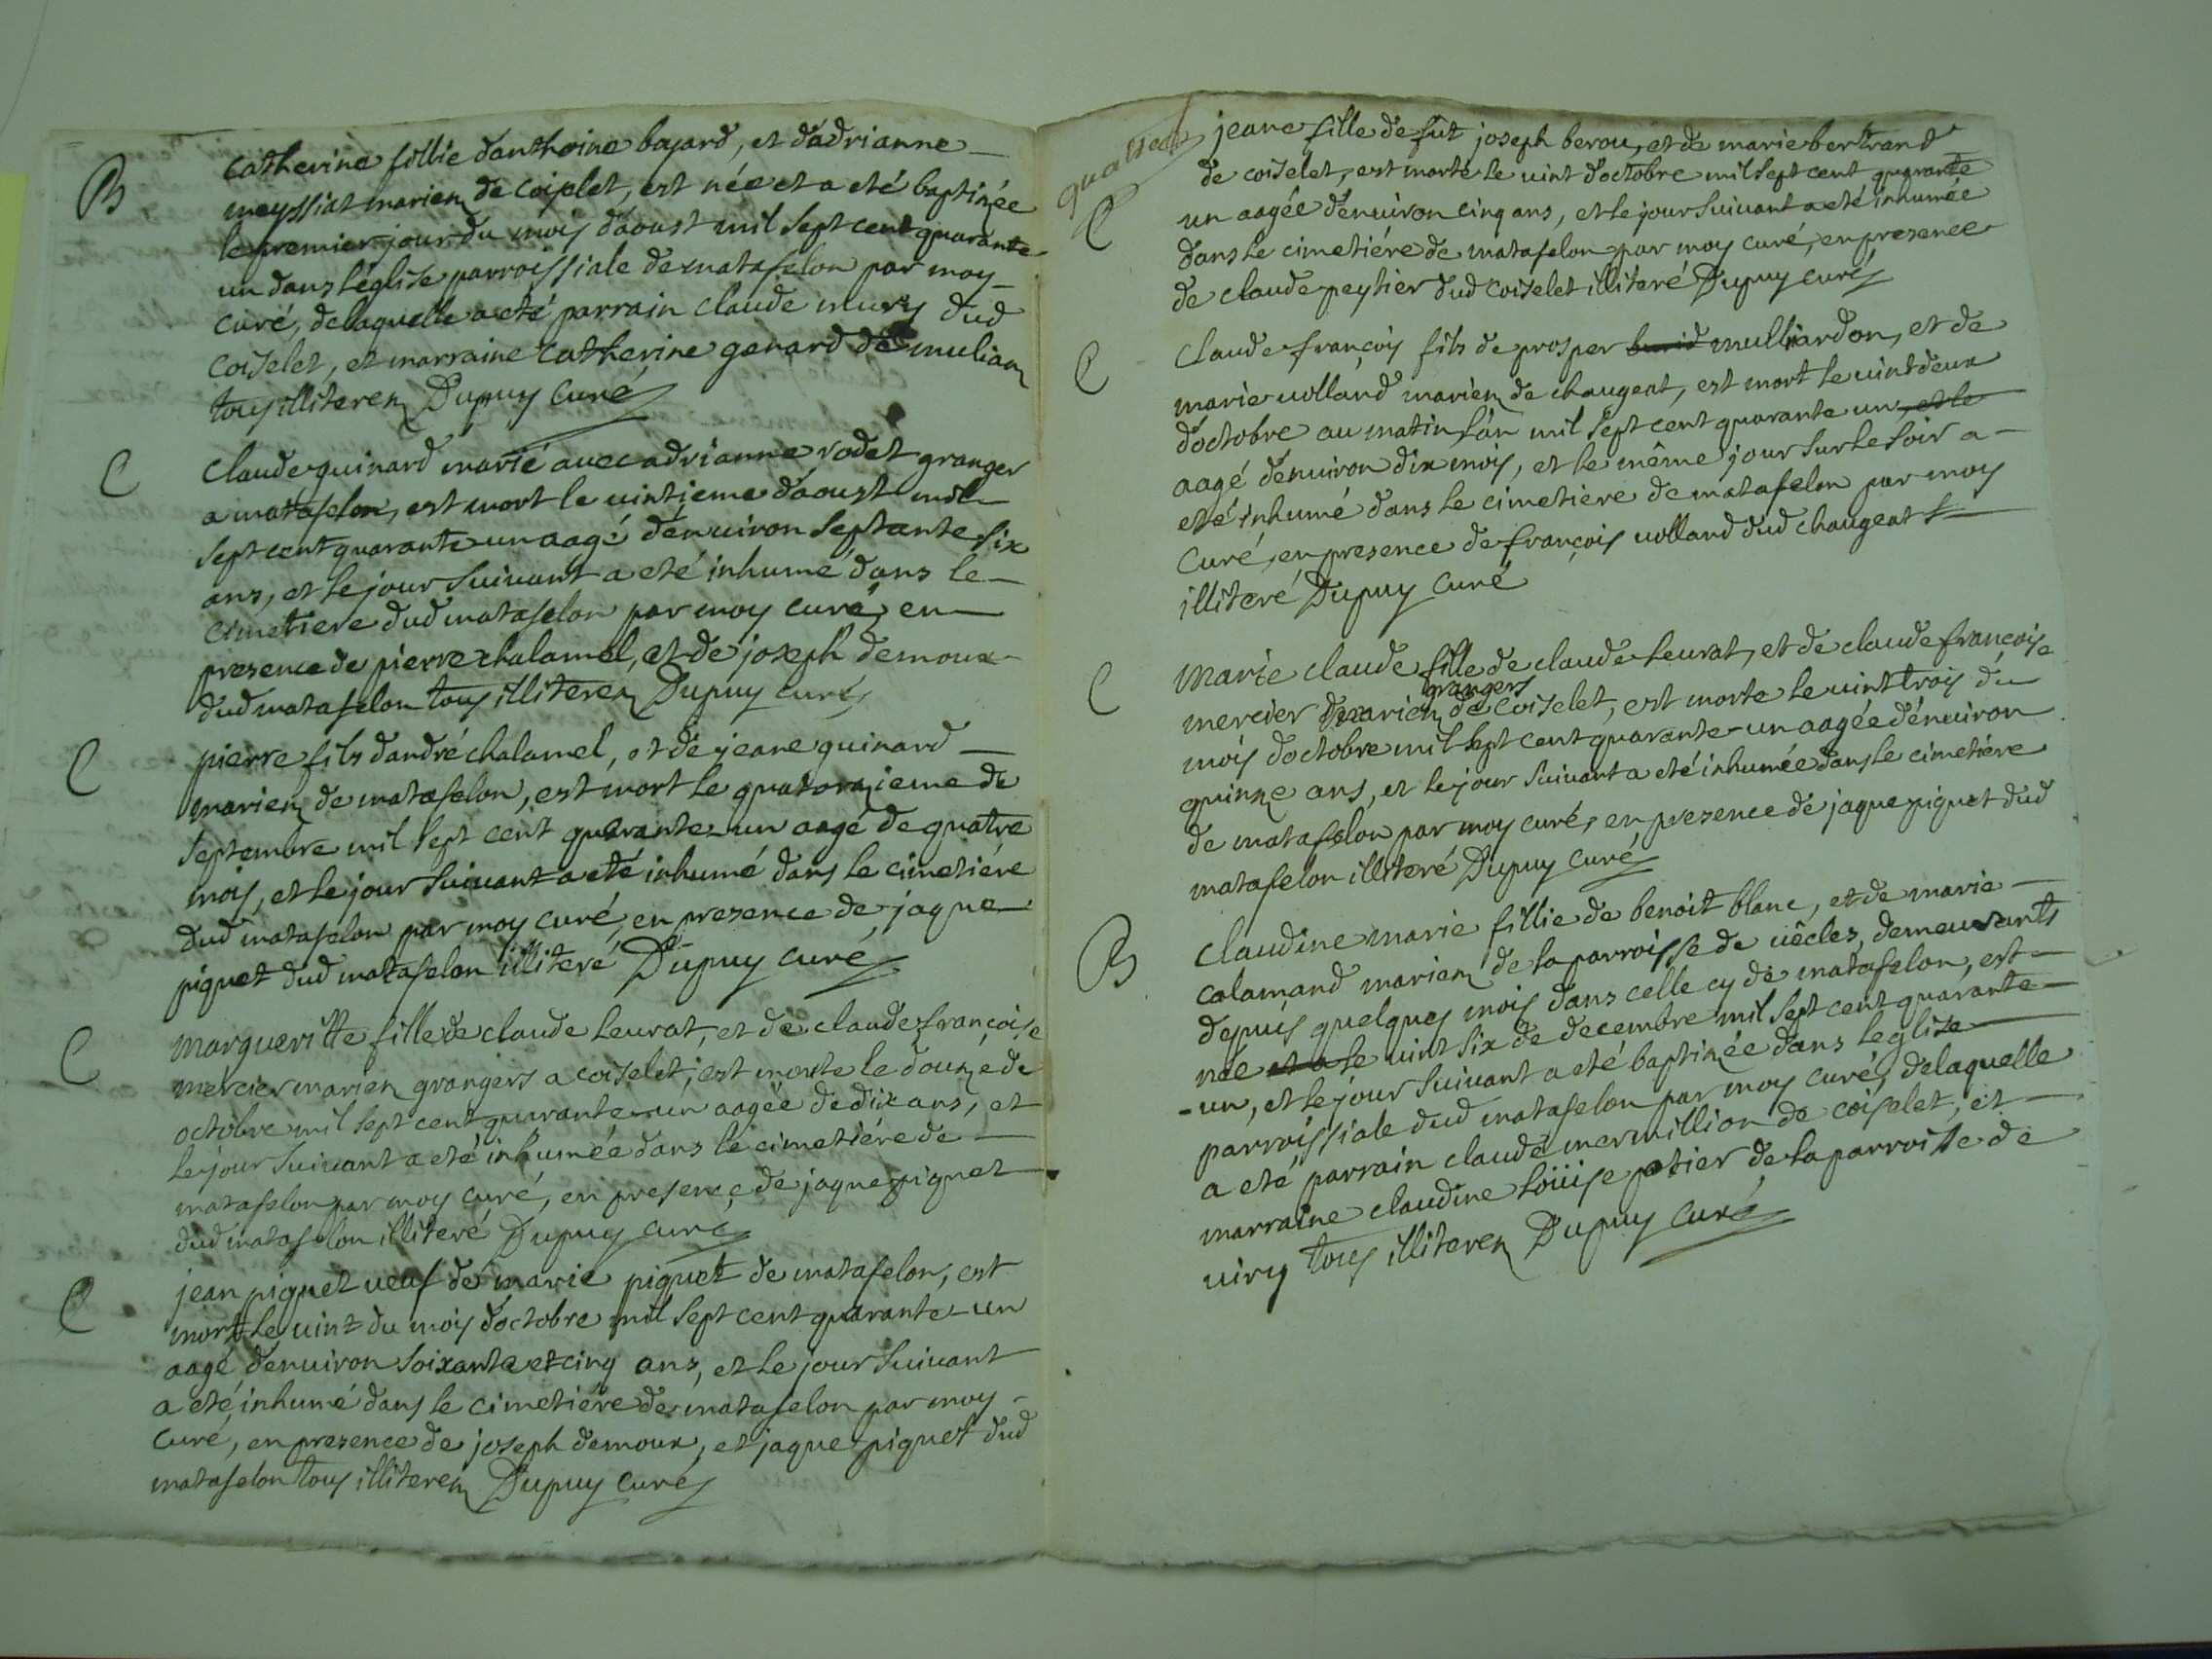 B
catherine fillie d'anthoine bayard, et d'adrianne
meyssiat mariez de coiselet, est née et a eté baptizée
le premier jour du mois d'aoust mil sept cent quarante
un dans l'église parroissiale de matafelon par moy
curé, de laquelle a eté parrain claude mury dud
coiselet, et marraine catherine genard de muliam
tous illiterez Dupuy curé
C
claude guinard marié avec adrianne rodet granger
a matafelon, est mort le vintieme d'aoust mil
sept cent quarante un aagé d'environ septante six
ans, et le jour suivant a eté inhumé dans le
cimetiere dud matafelon par moy curé, en
presence de pierre chalamel, et de joseph demoux
dud matafelon tous illiterez Dupuy curé
C
pierre fils d'andré chalamel, et de jeane guinard
mariez de matafelon, est mort le quatorzieme de
septembre mil sept cent quarante un aagé de quatre
mois, et le jour suivant a eté inhumé dans le cimetiére
dud matafelon par moy curé, en presence de jaque
piquet dud matafelon illiteré Dupuy curé
C
margueritte fille de claude leurat, et de claude françoise
mercier mariez grangers a coiselet, est morte le douze de
octobre mil sept cent quarante un aagée de dix ans, et
le jour suivant a eté inhumée dans le cimetiére de
matafelon par moy curé, en presence de jaque piquet
dud matafelon illiteré Dupuy curé
C
jean piquet veuf de marie piquet de matafelon, est
mort le vint du mois d'octobre mil sept cent quarante un
aagé d'environ soixante et cinq ans, et le jour suivant
a eté inhumé dans le cimetiére de matafelon par moy
curé, en presence de joseph demoux, et jaque piquet dud
matafelon tous illiterez Dupuy curé
C
jeane fille de fut joseph berou, et de marie bertrand
de coiselet, est morte le vint d'octobre mil sept cent quarante
un aagée d'environ cinq ans, et le jour suivant a eté inhumée
dans le cimetiére de matafelon par moy curé, en presence
de claude peytier dud coiselet illiteré Dupuy curé
C
claude françois fils de prosper mulliardon, et de
marie vollard mariez de chaugeat, est mort le vint deux
d'octobre au matin l'an mil sept cent quarante un, et le
aagé d'environ dix mois, et le même jour sur le soir a
eté inhumé dans le cimetiére de matafelon par moy
curé, en presence de françois vollard dud chaugeat
illiteré Dupuy curé
C
marie claude fille de claude leurat, et de claude françoise
grangers
mercier mariez de coiselet, est morte le vint trois du
mois d'octobre mil sept cent quarante un aagée d'environ
quinze ans, et le jour suivant a eté inhumée dans le cimetiére
de matafelon par moy curé, en presence de jaque piquet dud
matafelon illiteré Dupuy curé
B
claudine marie fillie de benoit blanc, et de marie
calamand mariez de la parroisse de vêcles, demeurants
depuis quelques mois dans celle cy de matafelon, est
née et a le vint six de decembre mil sept cent quarante
-un, et le jour suivant a eté baptizée dans leglise
parroissiale dud matafelon par moy curé, de laquelle
a eté parrain claude mermillion de coiselet, et
marraine claudine loüise potier de la parroisse de
viry tous illiterez Dupuy curé